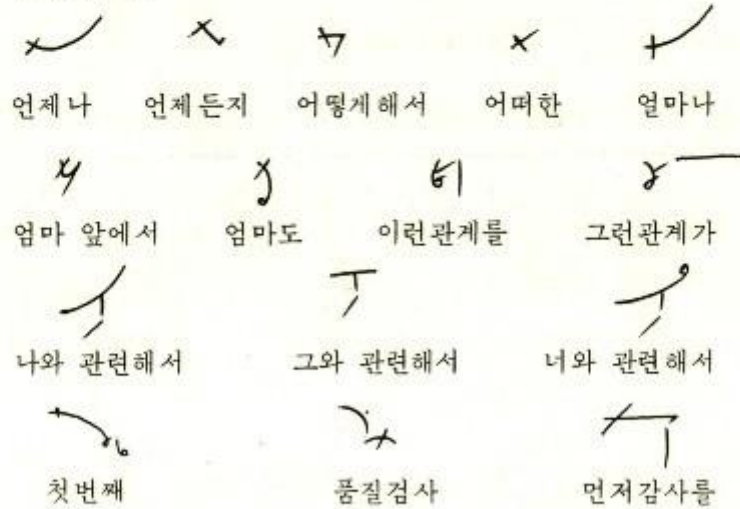 언제나 언제든지 어떻게해서 어떠한 얼마나
엄마 앞에서 엄마도 이런관계를 그런관계가
나와 관련해서 그와 관련해서 너와 관련해서
첫번째 품질검사 먼저감사를